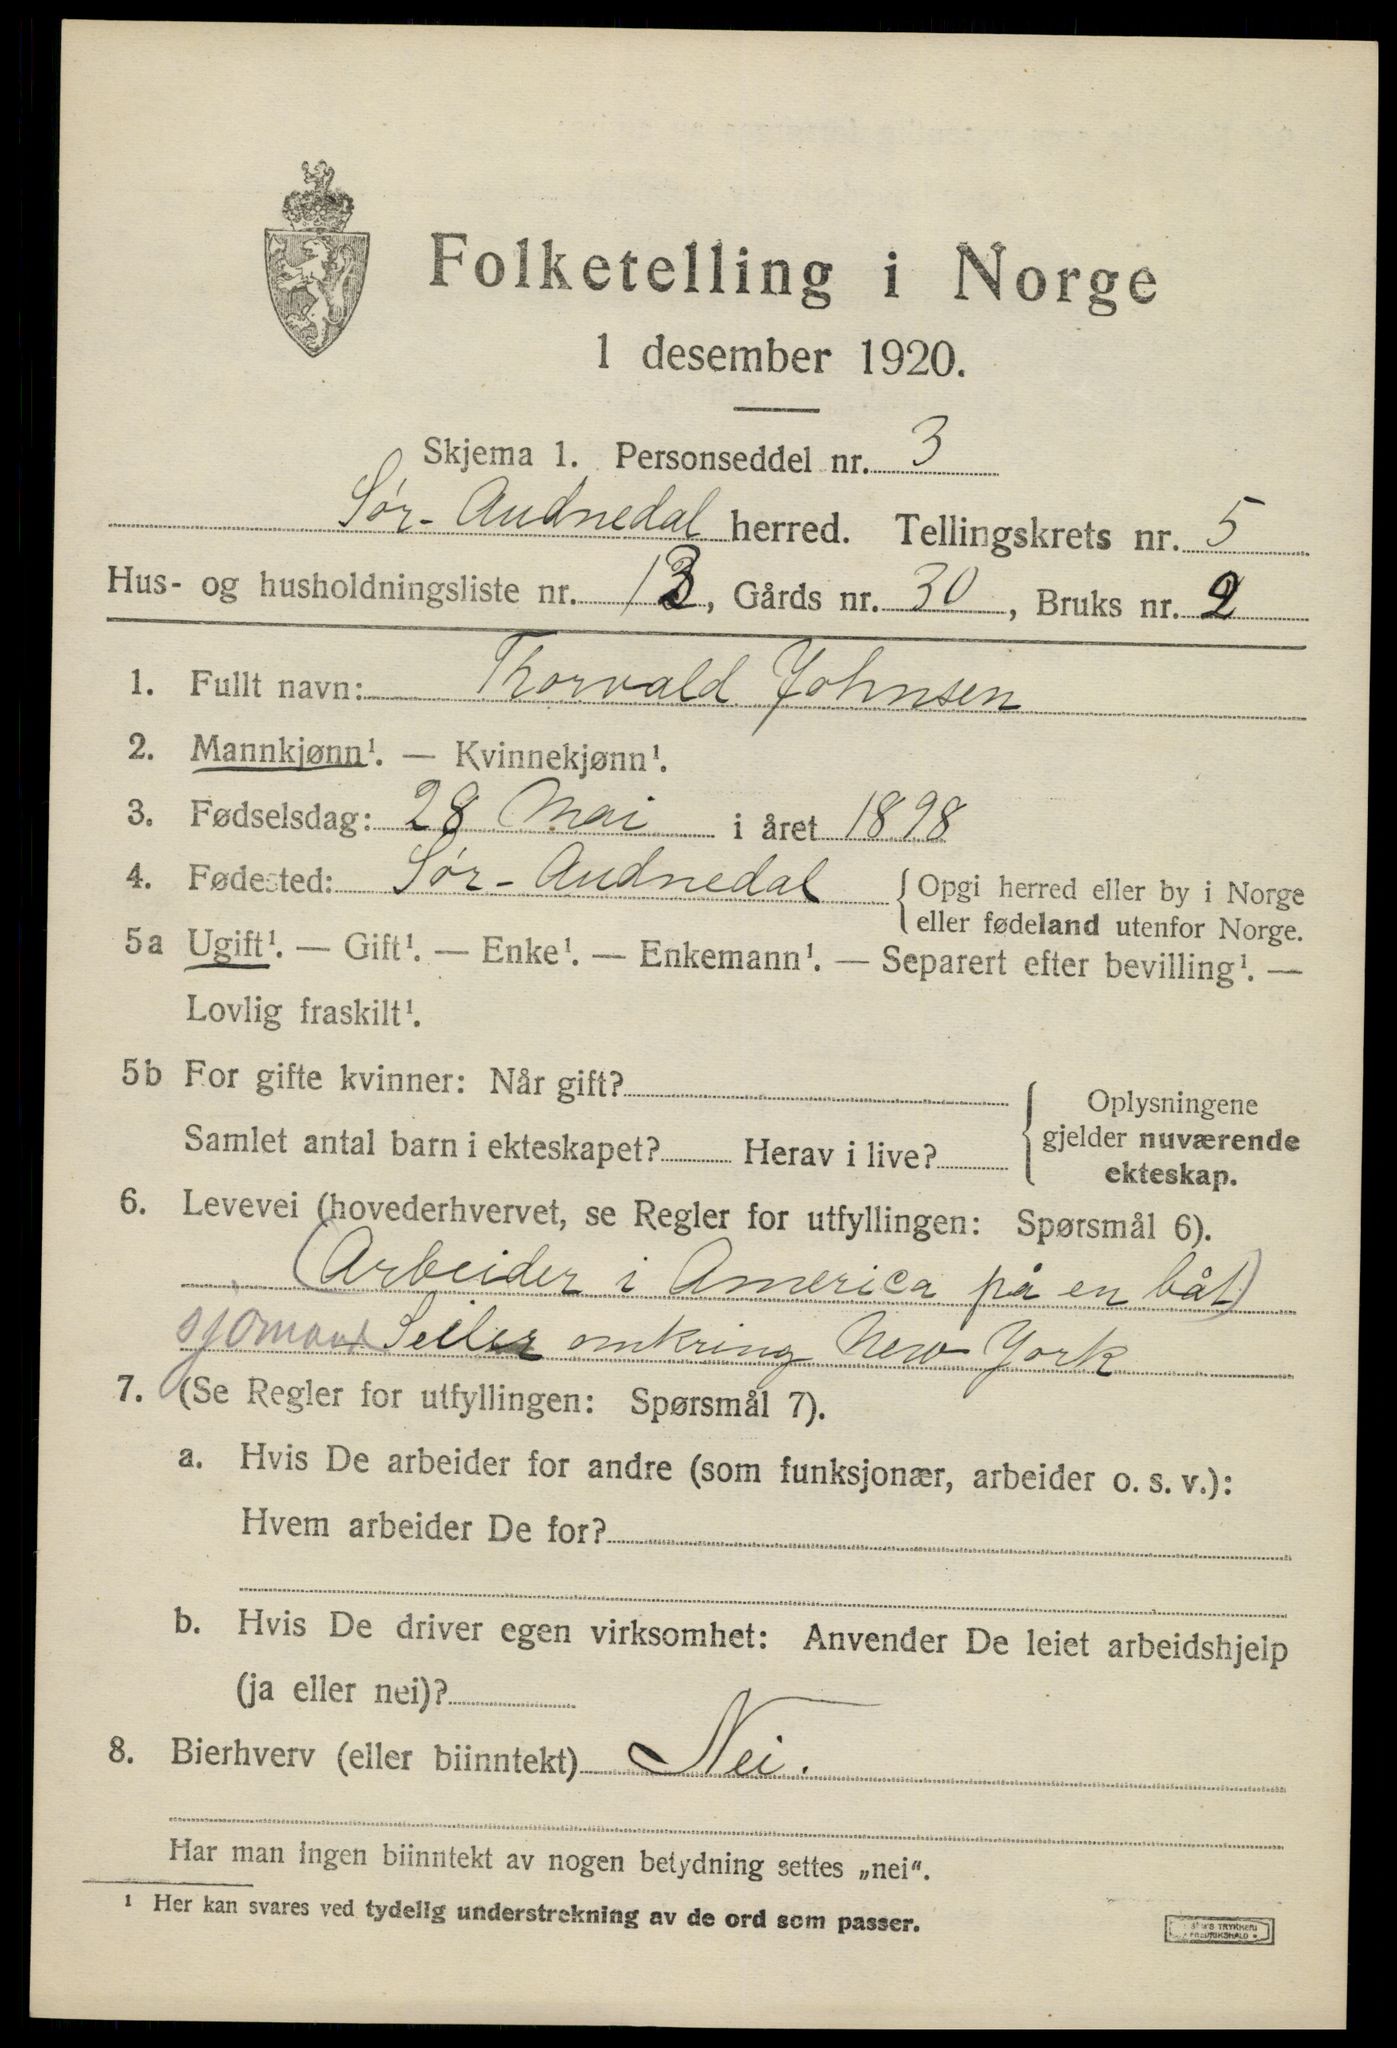 Folketelling i Norge
1 desember 1920.
Skjema 1. Personseddel nr. 3
Sør-Audnedal herred. Tellingskrets nr. 5
Hus- og husholdningsliste nr. 13, Gårds nr. 30, Bruks nr. 2
1. Fullt navn: Thorvald Johnsen
2. Mannkjønn¹. — Kvinnekjønn¹.
3. Fødselsdag: 28 Mai i året 1898
4. Fødested: Sør-Audnedal { Opgi herred eller by i Norge
eller fødeland utenfor Norge.
5a Ugift¹. — Gift¹. — Enke¹. — Enkemann¹. — Separert efter bevilling¹. —
Lovlig fraskilt¹.
5b For gifte kvinner: Når gift?
Samlet antal barn i ekteskapet? Herav i live?
{ Oplysningene
gjelder nuværende
ekteskap.
6. Levevei (hovederhvervet, se Regler for utfyllingen: Spørsmål 6).
(Arbeider i America på en båt)
sjømand Seiler omkring New York
7. (Se Regler for utfyllingen: Spørsmål 7).
a. Hvis De arbeider for andre (som funksjonær, arbeider o. s. v.):
Hvem arbeider De for?
b. Hvis De driver egen virksomhet: Anvender De leiet arbeidshjelp
(ja eller nei)?
8. Bierhverv (eller biinntekt) Nei.
Har man ingen biinntekt av nogen betydning settes „nei“.
¹ Her kan svares ved tydelig understrekning av de ord som passer.
TRYKKERI
FREDRIKSHALD